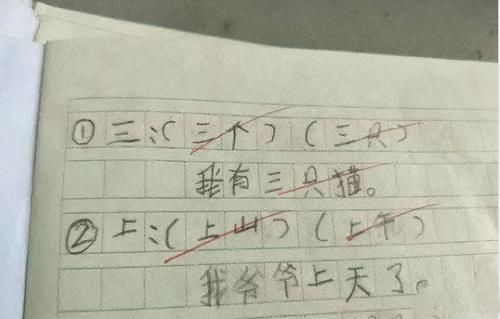 ①三:(三个)(三只)
我有三只猫。
②上:(上山)(上午)
我爷爷上天了。